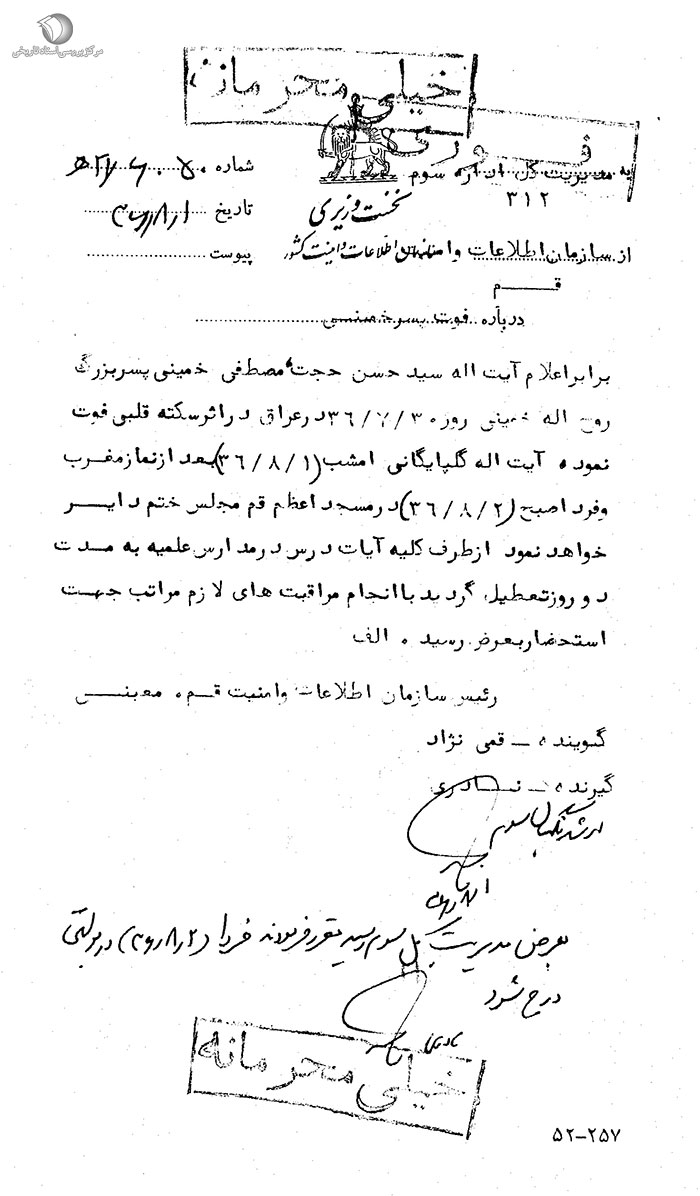 مرکز بررسی اسناد تاریخی
خیلی محرمانه
فوری
به مدیریت کل اداره سوم
۳۱۲
شماره
نخست وزیری
تاریخ ۳۶/۸/۱
از سازمان اطلاعات و امنیت
سازمان اطلاعات و امنیت کشور
پیوست
قم
درباره فوت پسر خمینی
برابر اعلام آیت اله سید حسن حجت مصطفی خمینی پسر بزرگ
روح اله خمینی روز ۳۶/۷/۳۰ در عراق در اثر سکته قلبی فوت
نموده آیت اله گلپایگانی امشب (۳۶/۸/۱) بعد از نماز مغرب
وفرد اصبح (۳۶/۸/۲) در مسجد اعظم قم مجلس ختم دایر
خواهد نمود از طرف کلیه آیات درس در مدارس علمیه به مدت
دو روز تعطیل گردید با انجام مراقبت های لازم مراتب جهت
استحضار بعرض رسید ۰ الف
رئیس سازمان اطلاعات وامنیت قم ۰ معینی
گوینده ــ قمی نژاد
گیرنده ــ نادری
بعرض مدیریت کل سوم رسید مقرر فرمودند فردا (۳۶/۸/۲) در بولتن
درج شود
نادری
خیلی محرمانه
۵۲-۲۵۷